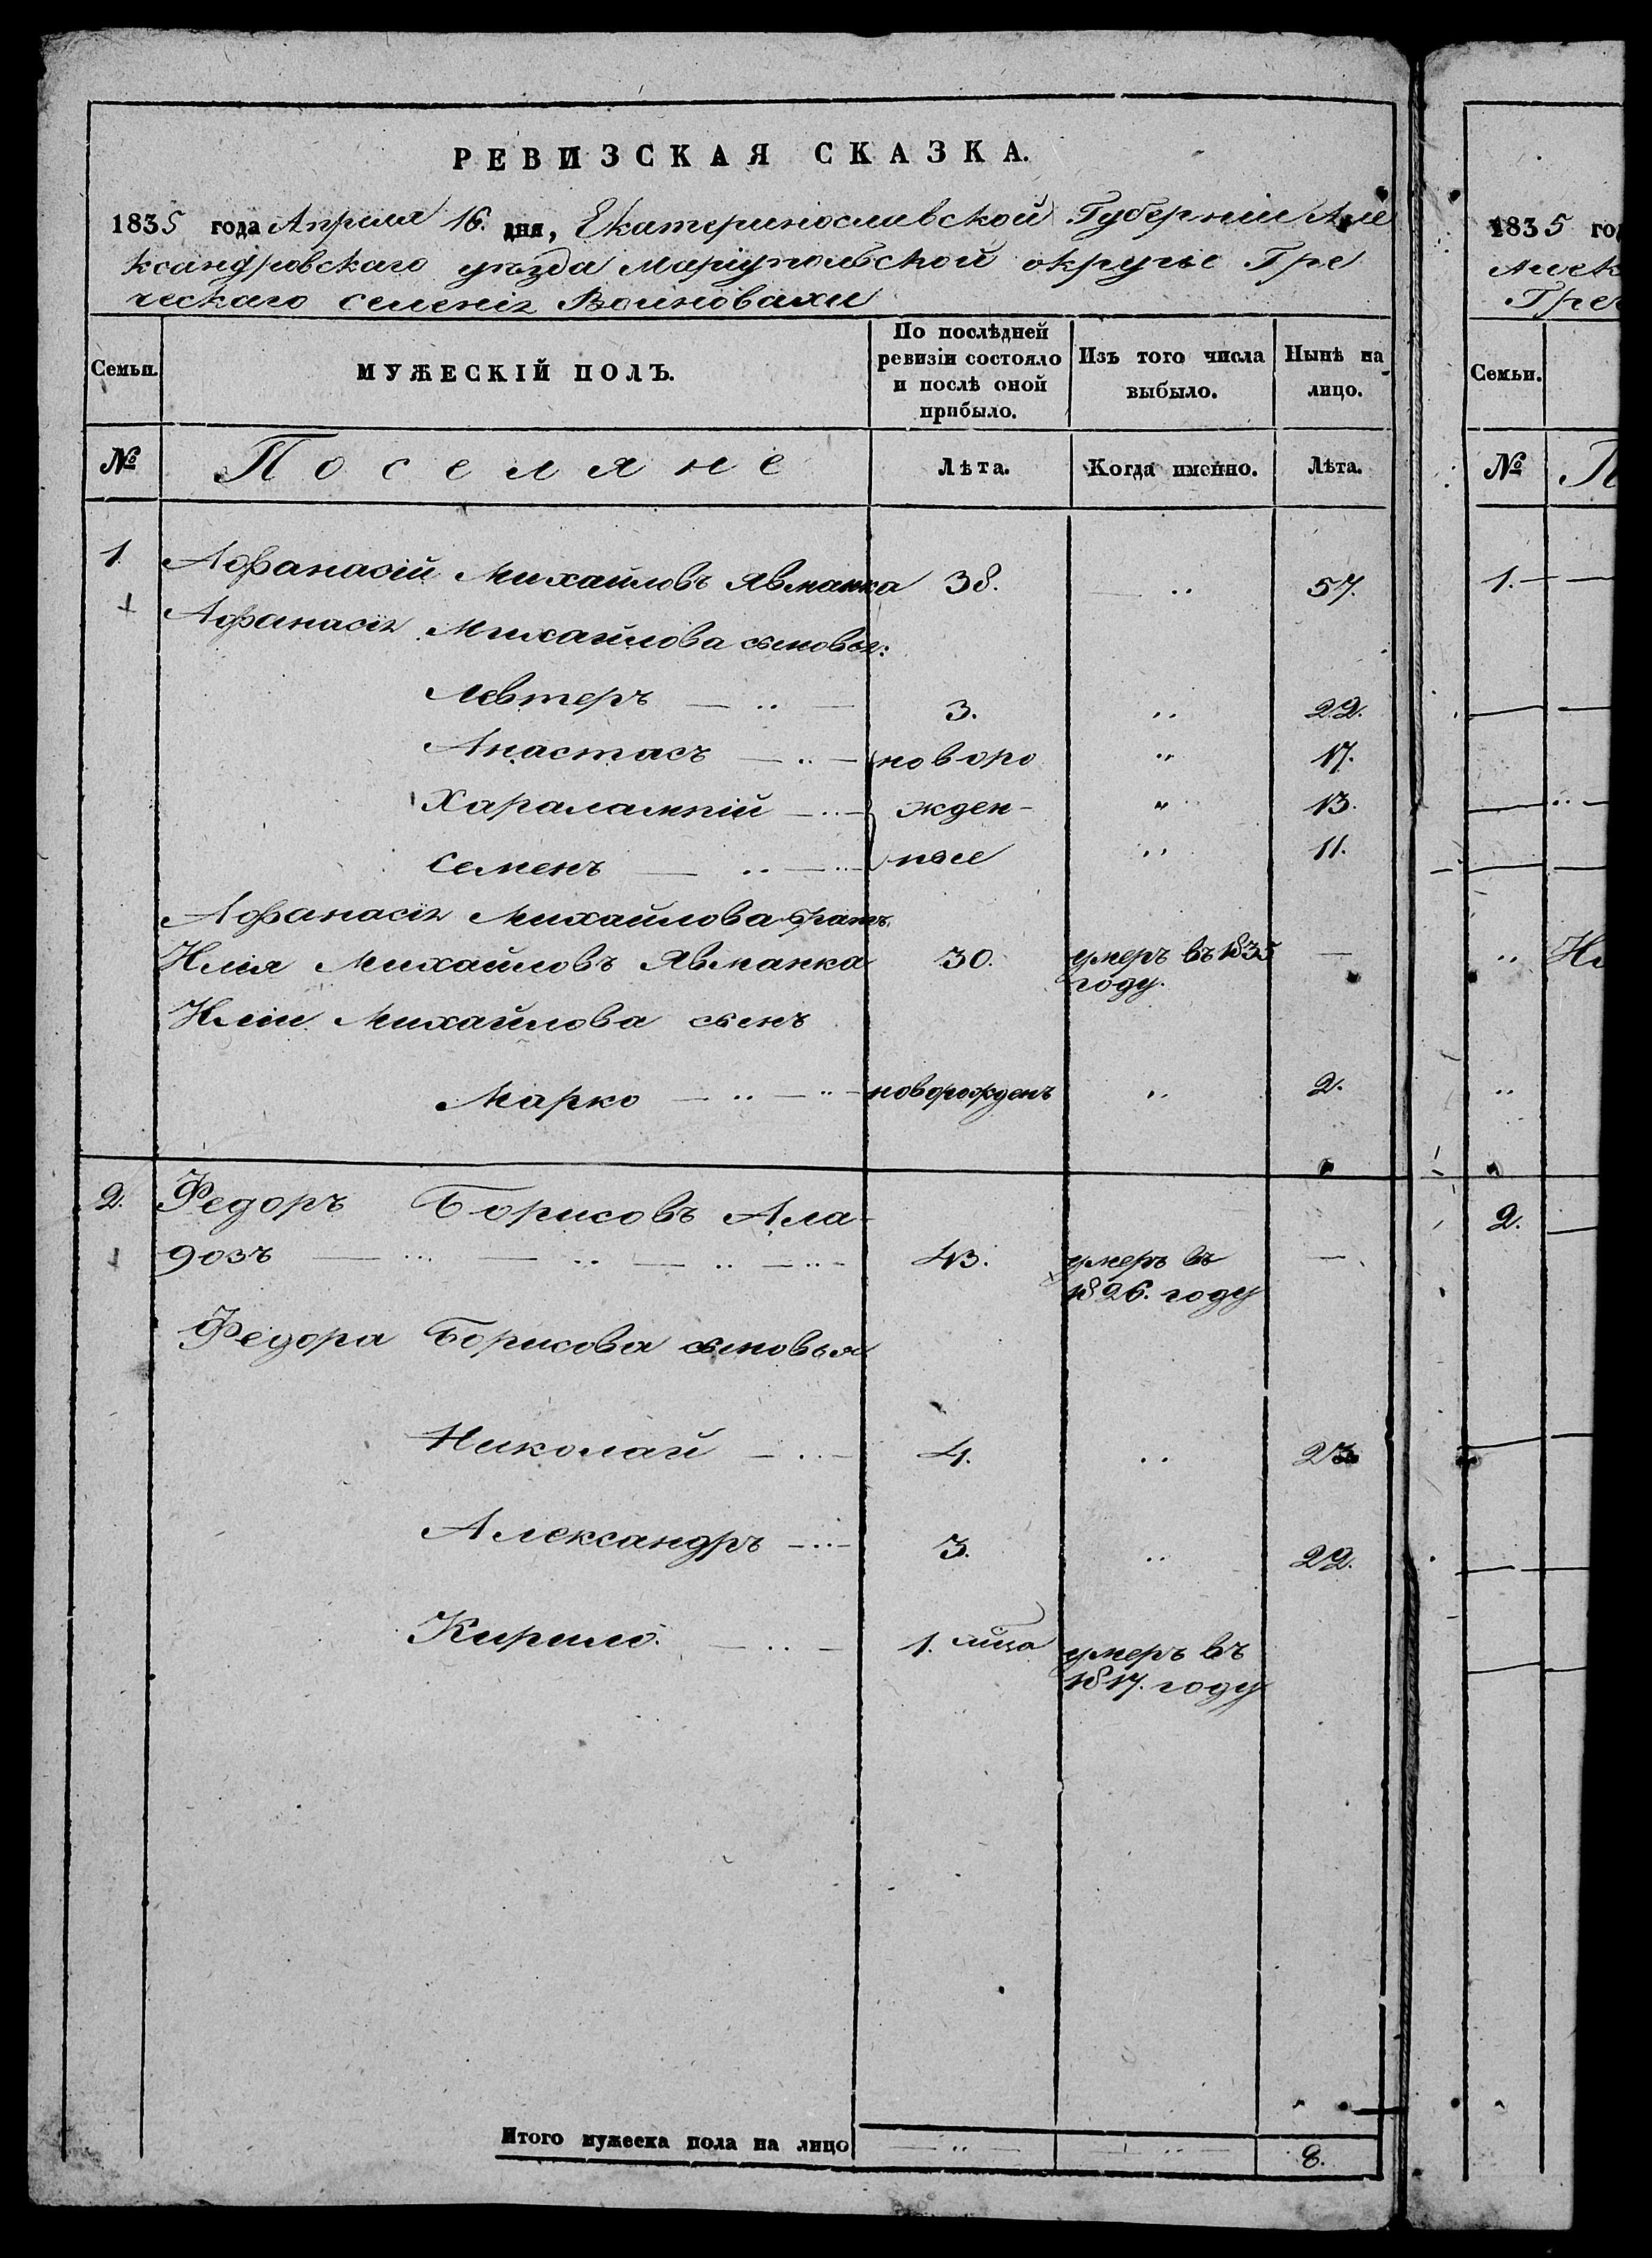 РЕВИЗСКАЯ СКАЗКА.
1835 года Апреля 16. дня, Екатеринославской Губерніи Але
ксандровскаго уѣзда Маріупольской округѣ Гре
ческаго селенія Волновахи
Семьи. МУЖЕСКІЙ ПОЛЪ. По послѣдней ревизіи состояло и послѣ оной прибыло. Изъ того числа выбыло. Нынѣ на лицо.
№ Поселяне Лѣта. Когда именно. Лѣта.
1. Афанасій Михайловъ Явманка 38. 57.
Афанасія Михайлова сыновья:
Левтеръ 3. 22.
Анастасъ новоро 17.
Харалампій жден- 13.
Семенъ ные 11.
Афанасія Михайлова братъ
Илія Михайловъ Явманка 30. умеръ въ 1835 —
году.
Иліи Михайлова сынъ
Марко новорожденъ 2.
2. Федоръ Борисовъ Ала-
дозъ 43. умеръ въ —
1826. году
Федора Борисова сыновья
Николай 4. 23.
Александръ 3. 22.
Кирило. 1. умеръ въ
1817. году
Итого мужеска пола на лицо 8.
1835 го
Алек
Грe
Семьи.
№ П
1.
Ил
2.